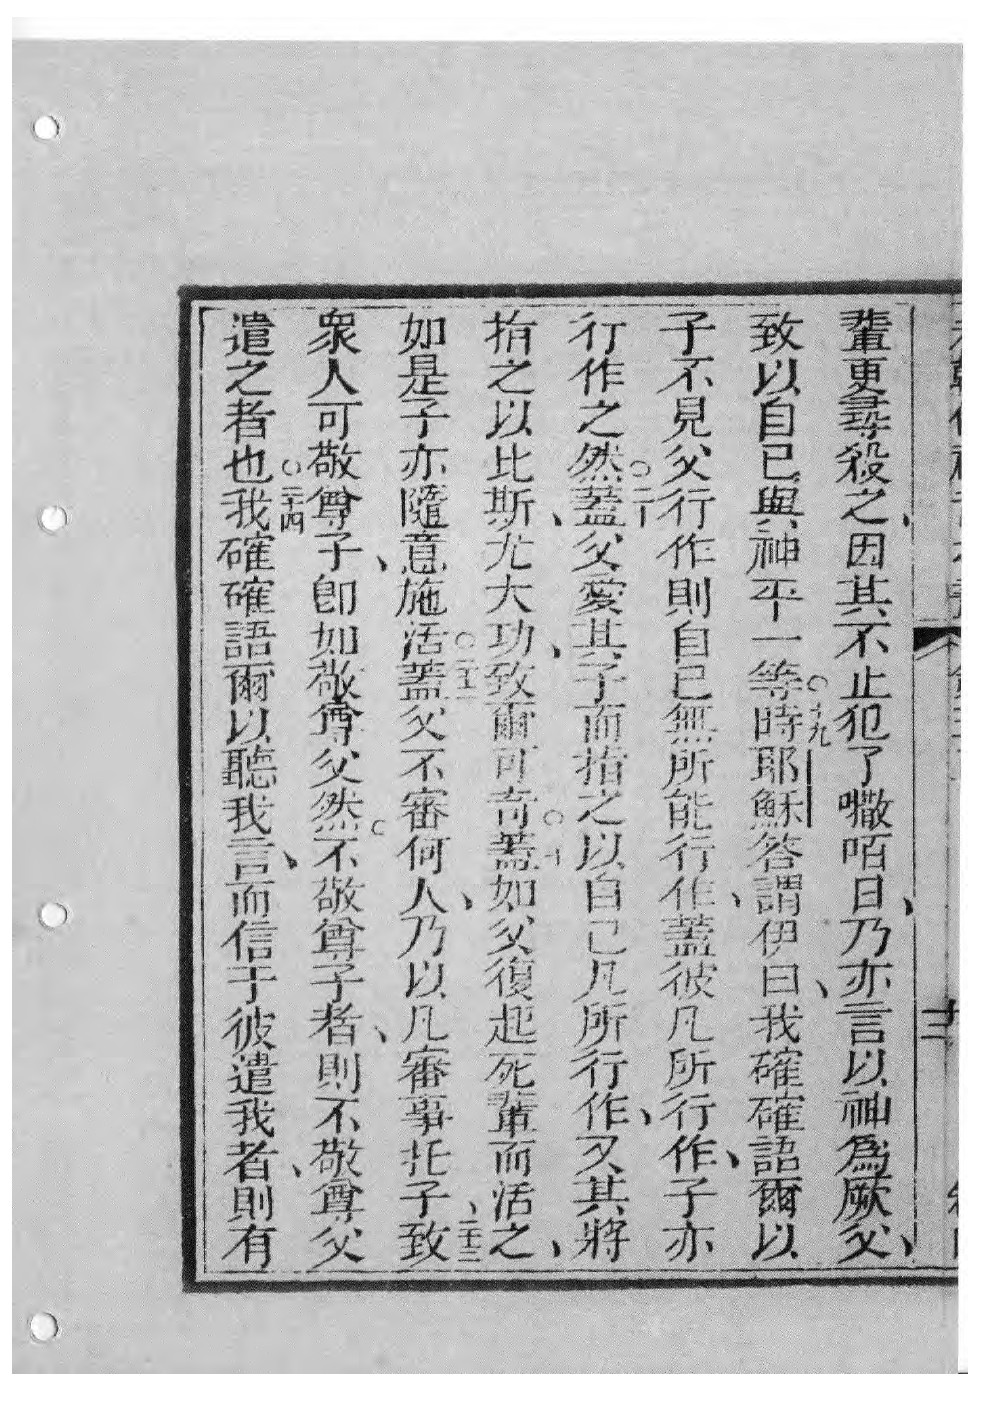 輩更尋殺之、因其不止犯了嚫咟日、乃亦言以神為厥父、
致以自己與神平一等○十九時耶穌答謂伊曰、我確確語爾以
子不見父行作則自己無所能行作、蓋彼凡所行作、子亦
行作之然○二十蓋父愛其子而指之以自己凡所行作、又其將
指之以比斯、尤大功、致爾可奇○二十一蓋如父復起死輩而活之、
如是子亦隨意施活○二十二蓋父不審何人、乃以凡審事托子、二十三致
眾人可敬尊子、即如敬尊父然○不敬尊子者、則不敬尊父
遣之者也○二十四我確確語爾以聽我言、而信于彼遣我者、則有